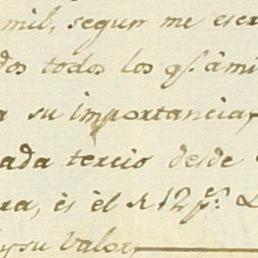 mil, segun me escr
dos todos los q.s â mi
a su importancia,
ada tercio desde
ra, ès èl
su valor